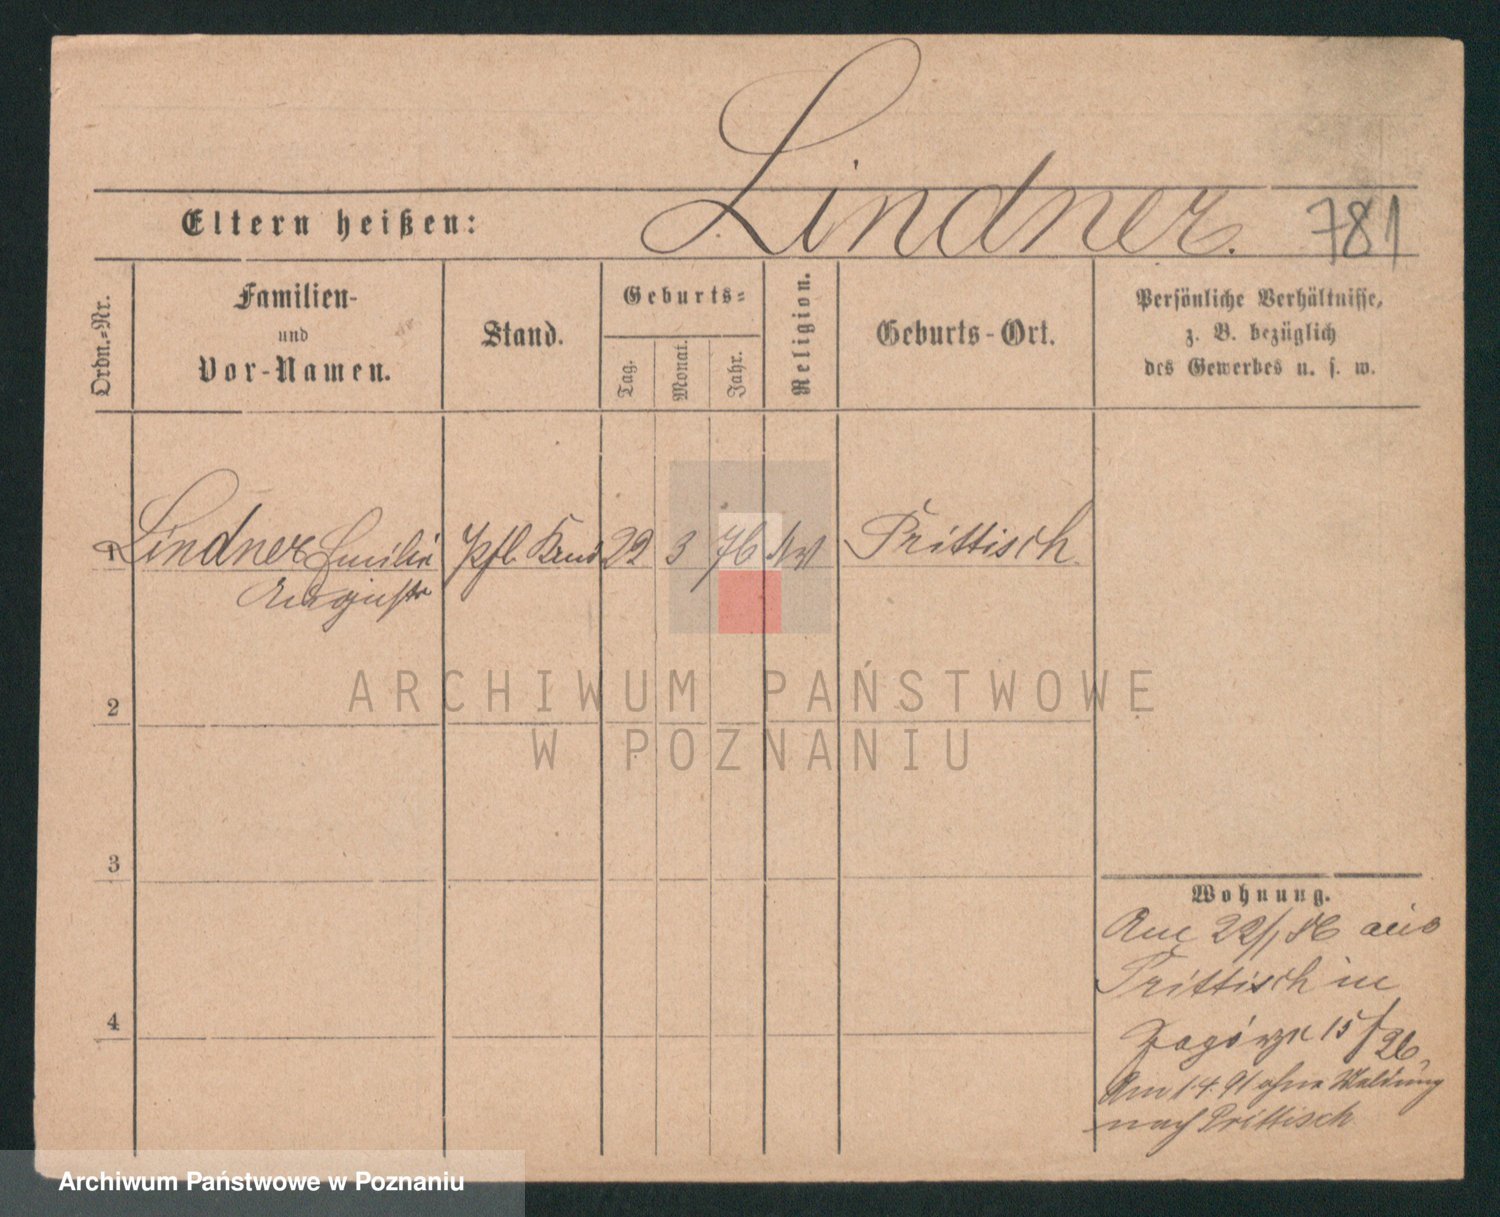 Lindner.
781
Eltern heißen:
Ordn.-Nr.
Familien-
und
Vor-Namen.
Stand.
Geburts-
Tag.
Monat.
Jahr.
Religion.
Geburts-Ort.
Persönliche Verhältnisse,
z. B. bezüglich
des Gewerbes u. s. w.
1
Lindner Emilie
Auguste
Pfl. Kind
22
3
76
Prittisch
2
3
4
Wohnung.
Am 22/1 86 aus
Prittisch in
Zagórze 15/26,
Am 1.4.91 ohne Meldung
nach Prittisch
ARCHIWUM PAŃSTWOWE
W POZNANIU
Archiwum Państwowe w Poznaniu